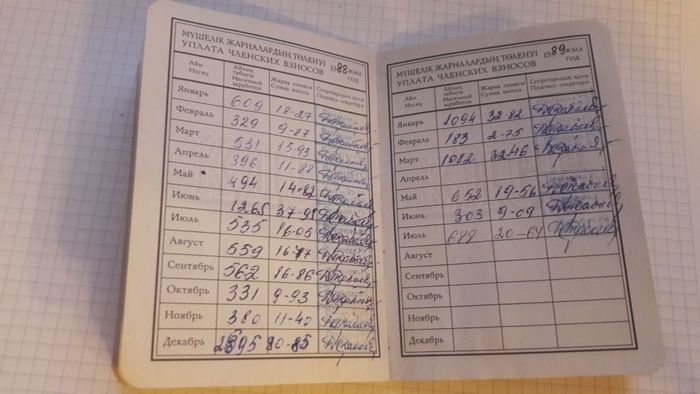 МҮШЕЛІК ЖАРНАЛАРДЫҢ ТӨЛЕНУІ
УПЛАТА ЧЛЕНСКИХ ВЗНОСОВ 1988 ЖЫЛ ГОД
Айы Месяц Айлық табысы Месячный заработок Жарна сомасы Сумма взноса Секретардың қолы Подпись секретаря
Январь 609 18-27
Февраль 329 9-87
Март 531 15-93
Апрель 396 11-88
Май 494 14-82
Июнь 1265 37-95
Июль 535 16-05
Август 559 16-77
Сентябрь 562 16-86
Октябрь 331 9-93
Ноябрь 380 11-40
Декабрь 2695 80-85
МҮШЕЛІК ЖАРНАЛАРДЫҢ ТӨЛЕНУІ
УПЛАТА ЧЛЕНСКИХ ВЗНОСОВ 1989 ЖЫЛ ГОД
Айы Месяц Айлық табысы Месячный заработок Жарна сомасы Сумма взноса Секретардың қолы Подпись секретаря
Январь 1094 32-82
Февраль 183 2-75
Март 1082 32-46
Апрель
Май 652 19-56
Июнь 303 9-09
Июль 688 20-64
Август
Сентябрь
Октябрь
Ноябрь
Декабрь